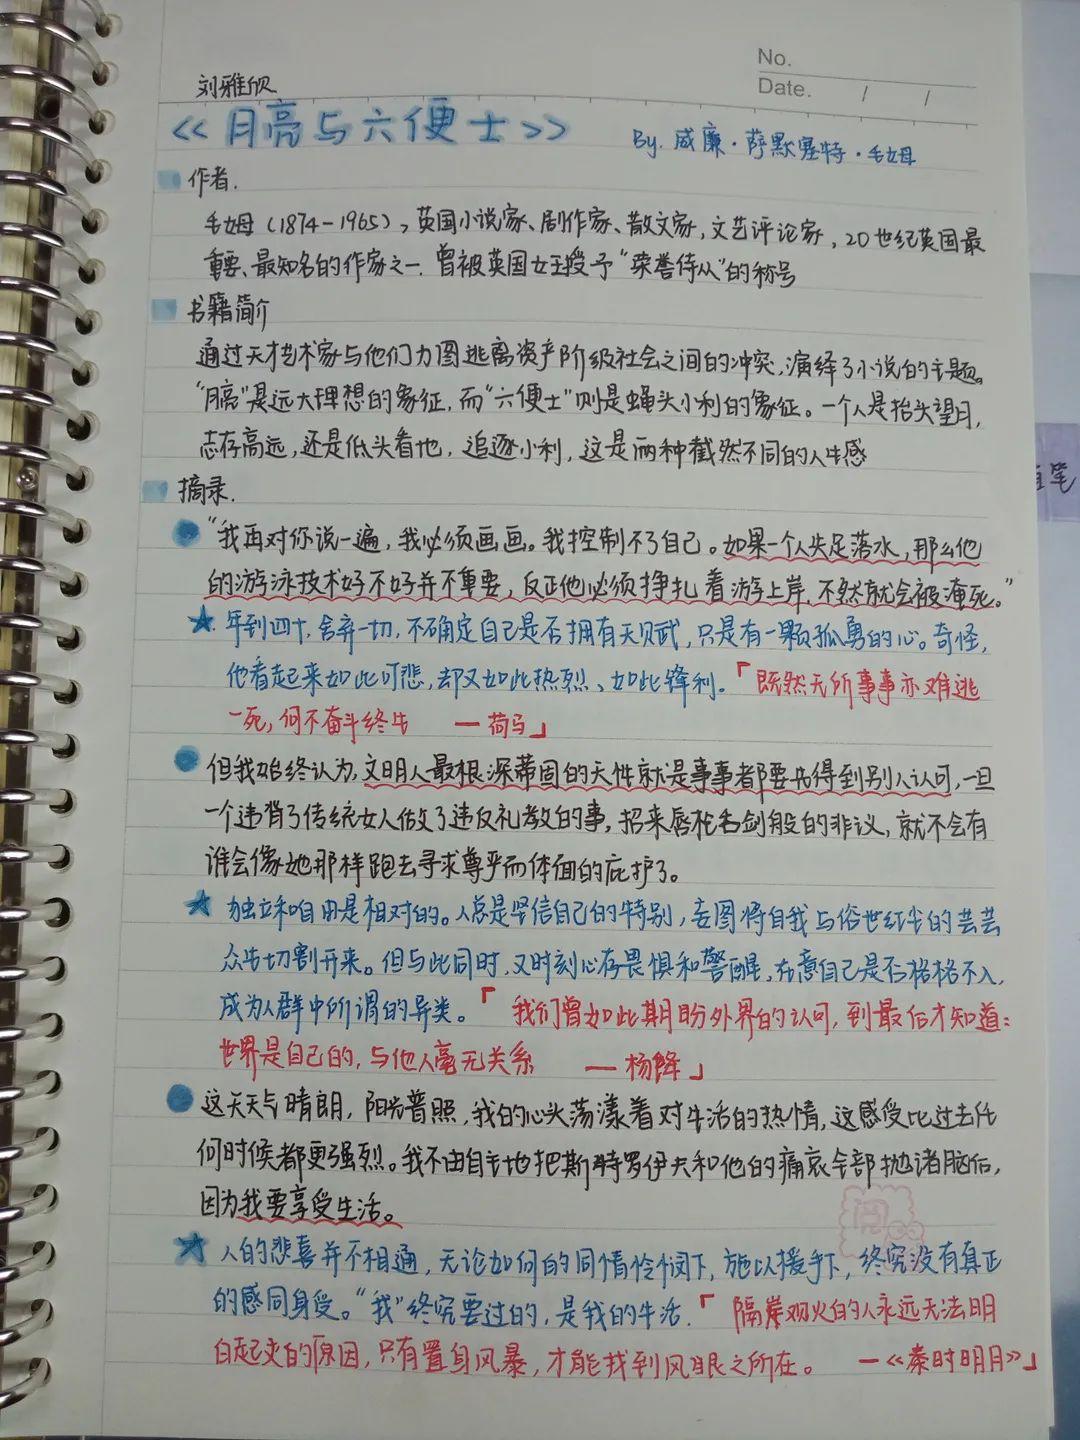 No.
刘雅欣
Date. / /
《月亮与六便士》
By. 威廉·萨默塞特·毛姆
作者.
毛姆(1874-1965),英国小说家、剧作家、散文家,文艺评论家,20世纪英国最
重要、最知名的作家之一.曾被英国女王授予“荣誉侍从”的称号
书籍简介
通过天才艺术家与他们力图逃离资产阶级社会之间的冲突,演绎了小说的主题。
“月亮”是远大理想的象征,而“六便士”则是蝇头小利的象征。一个人是抬头望月,
志存高远,还是低头看地,追逐小利,这是两种截然不同的人生感
摘录.
“我再对你说一遍,我必须画画。我控制不了自己。如果一个人失足落水,那么他
的游泳技术好不好并不重要,反正他必须挣扎着游上岸,不然就会被淹死。”
年到四十,舍弃一切,不确定自己是否拥有天赋,只是有一颗孤勇的心。奇怪,
他看起来如此可悲,却又如此热烈、如此锋利.「既然无所事事亦难逃
一死,何不奋斗终生 —荷马」
但我始终认为,文明人最根深蒂固的天性就是事事都要先得到别人认可,一旦
一个违背了传统女人做了违反礼教的事,招来唇枪舌剑般的非议,就不会有
谁会像她那样跑去寻求尊严而体面的庇护了。
独立和自由是相对的。人总是坚信自己的特别,妄图将自我与俗世红尘的芸芸
众生切割开来。但与此同时,又时刻心存畏惧和警醒,在意自己是否格格不入,
成为人群中所谓的异类。「我们曾如此期盼外界的认可,到最后才知道:
世界是自己的,与他人毫无关系 —杨绛」
这天天气晴朗,阳光普照,我的心头荡漾着对生活的热情,这感受比过去任
何时候都更强烈。我不由自主地把斯特罗伊夫和他的痛哀全部抛诸脑后,
因为我要享受生活。
人的悲喜并不相通,无论如何的同情怜悯下,施以援手下,终究没有真正
的感同身受。“我”终究要过的,是我的生活.「隔岸观火的人永远无法明
白起火的原因,只有置身风暴,才能找到风眼之所在。 —《秦时明月》」
笔